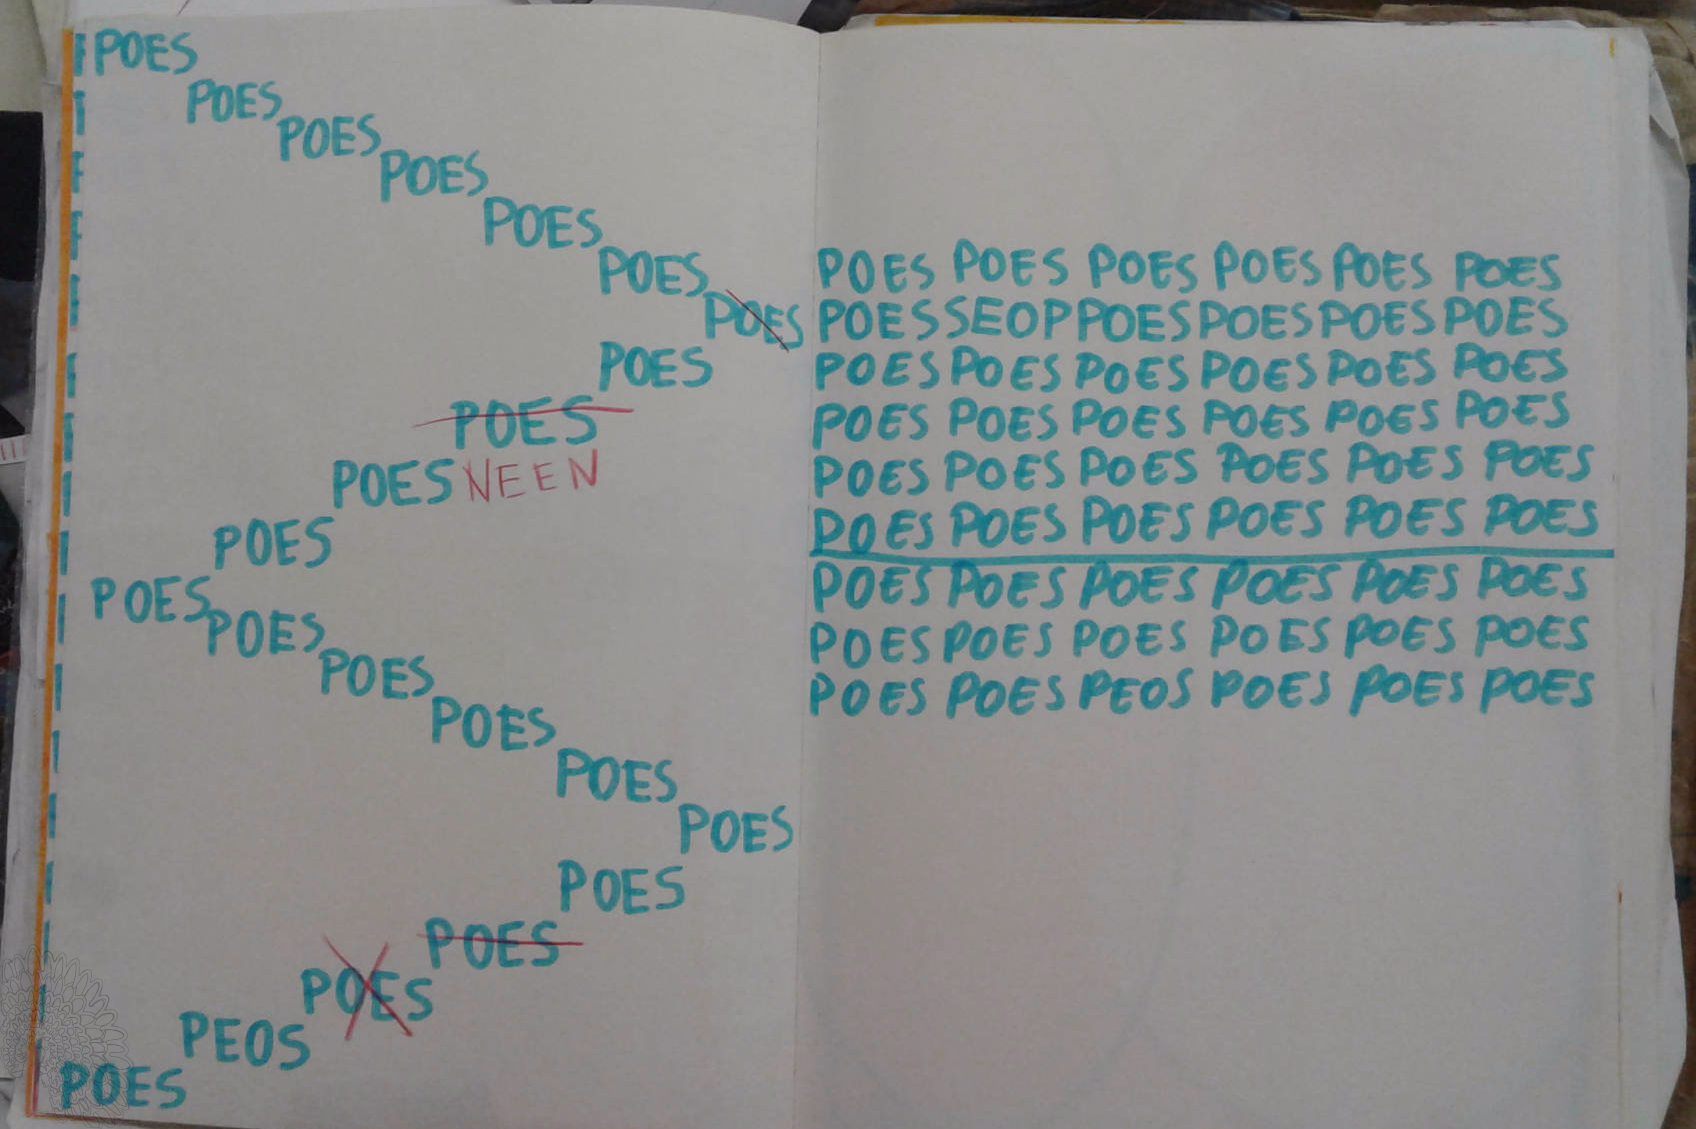 POES
POES
POES
POES
POES
POES
POES
POES
POES
POES NEEN
POES
POES
POES
POES
POES
POES
POES
POES
POES
POES
PEOS
POES
POES POES POES POES POES POES
POES SEOP POES POES POES POES
POES POES POES POES POES POES
POES POES POES POES POES POES
POES POES POES POES POES POES
POES POES POES POES POES POES
POES POES POES POES POES POES
POES POES POES POES POES POES
POES POES PEOS POES POES POES